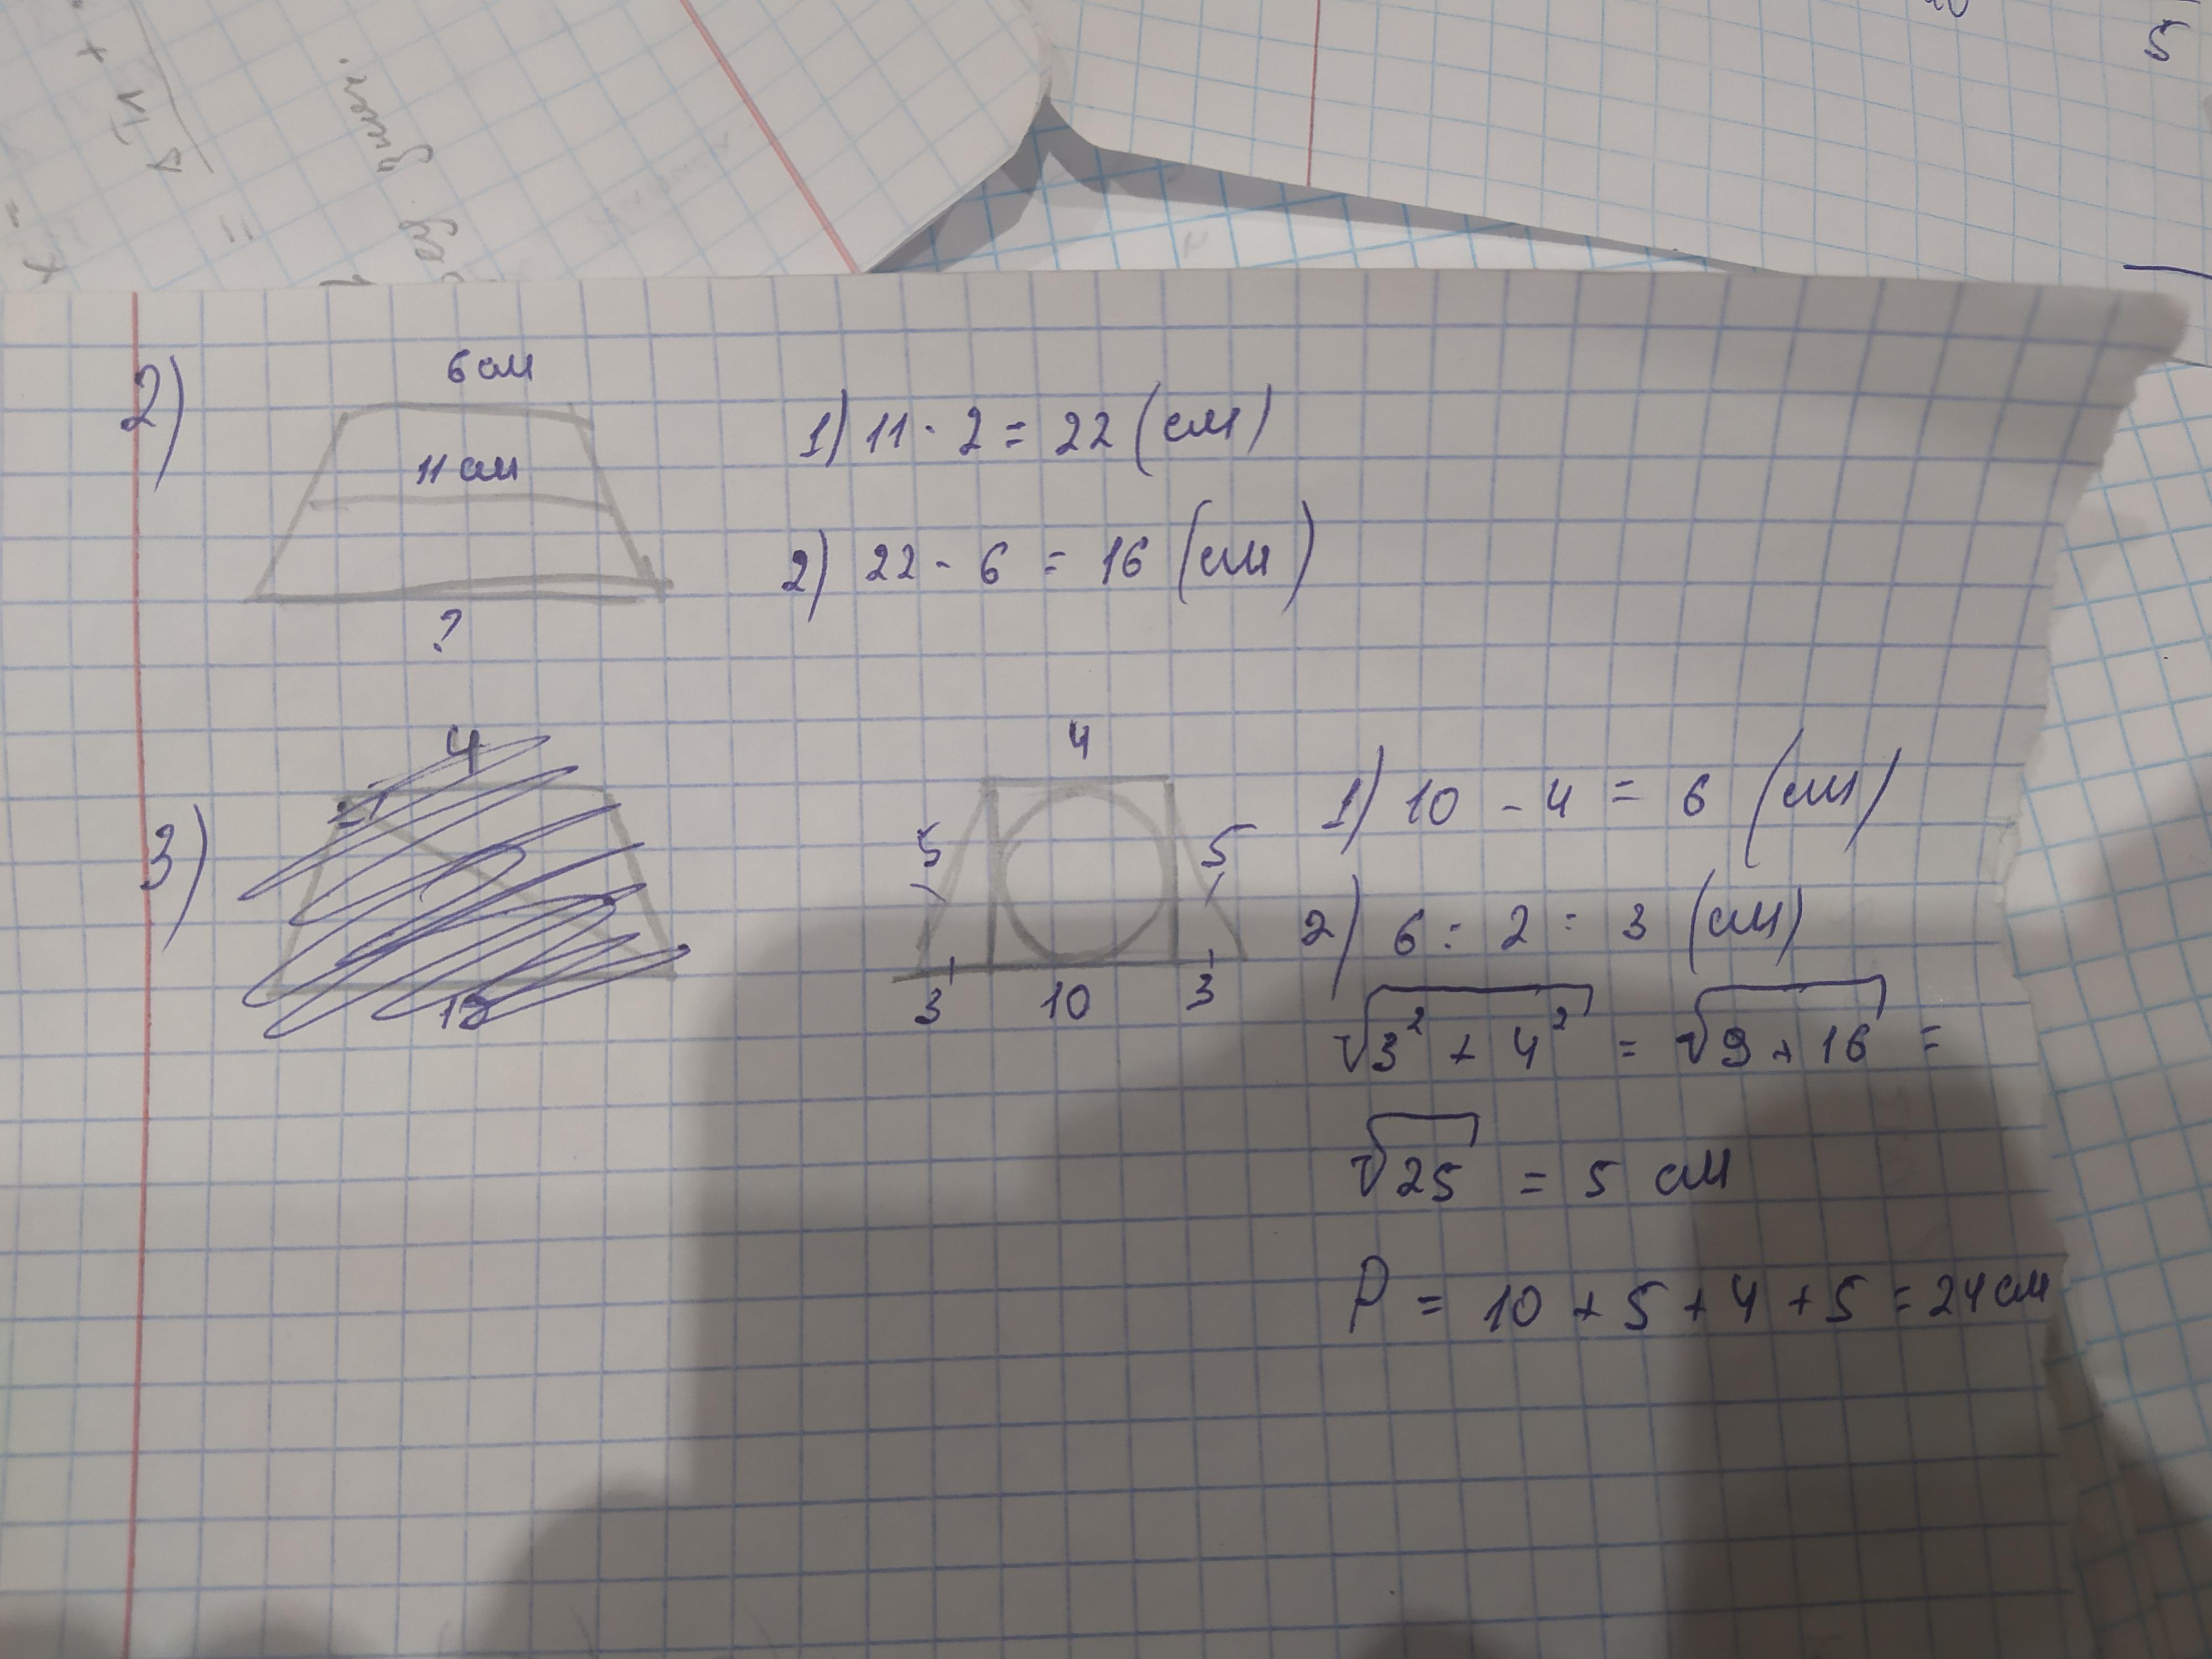 5
2)
6 см
11 см
?
1) 11 · 2 = 22 (см)
2) 22 - 6 = 16 (см)
3)
4
4
5
5
3
10
3
1) 10 - 4 = 6 (см)
2) 6 : 2 = 3 (см)
√3² + 4² = √9 + 16 =
√25 = 5 см
P = 10 + 5 + 4 + 5 = 24 см